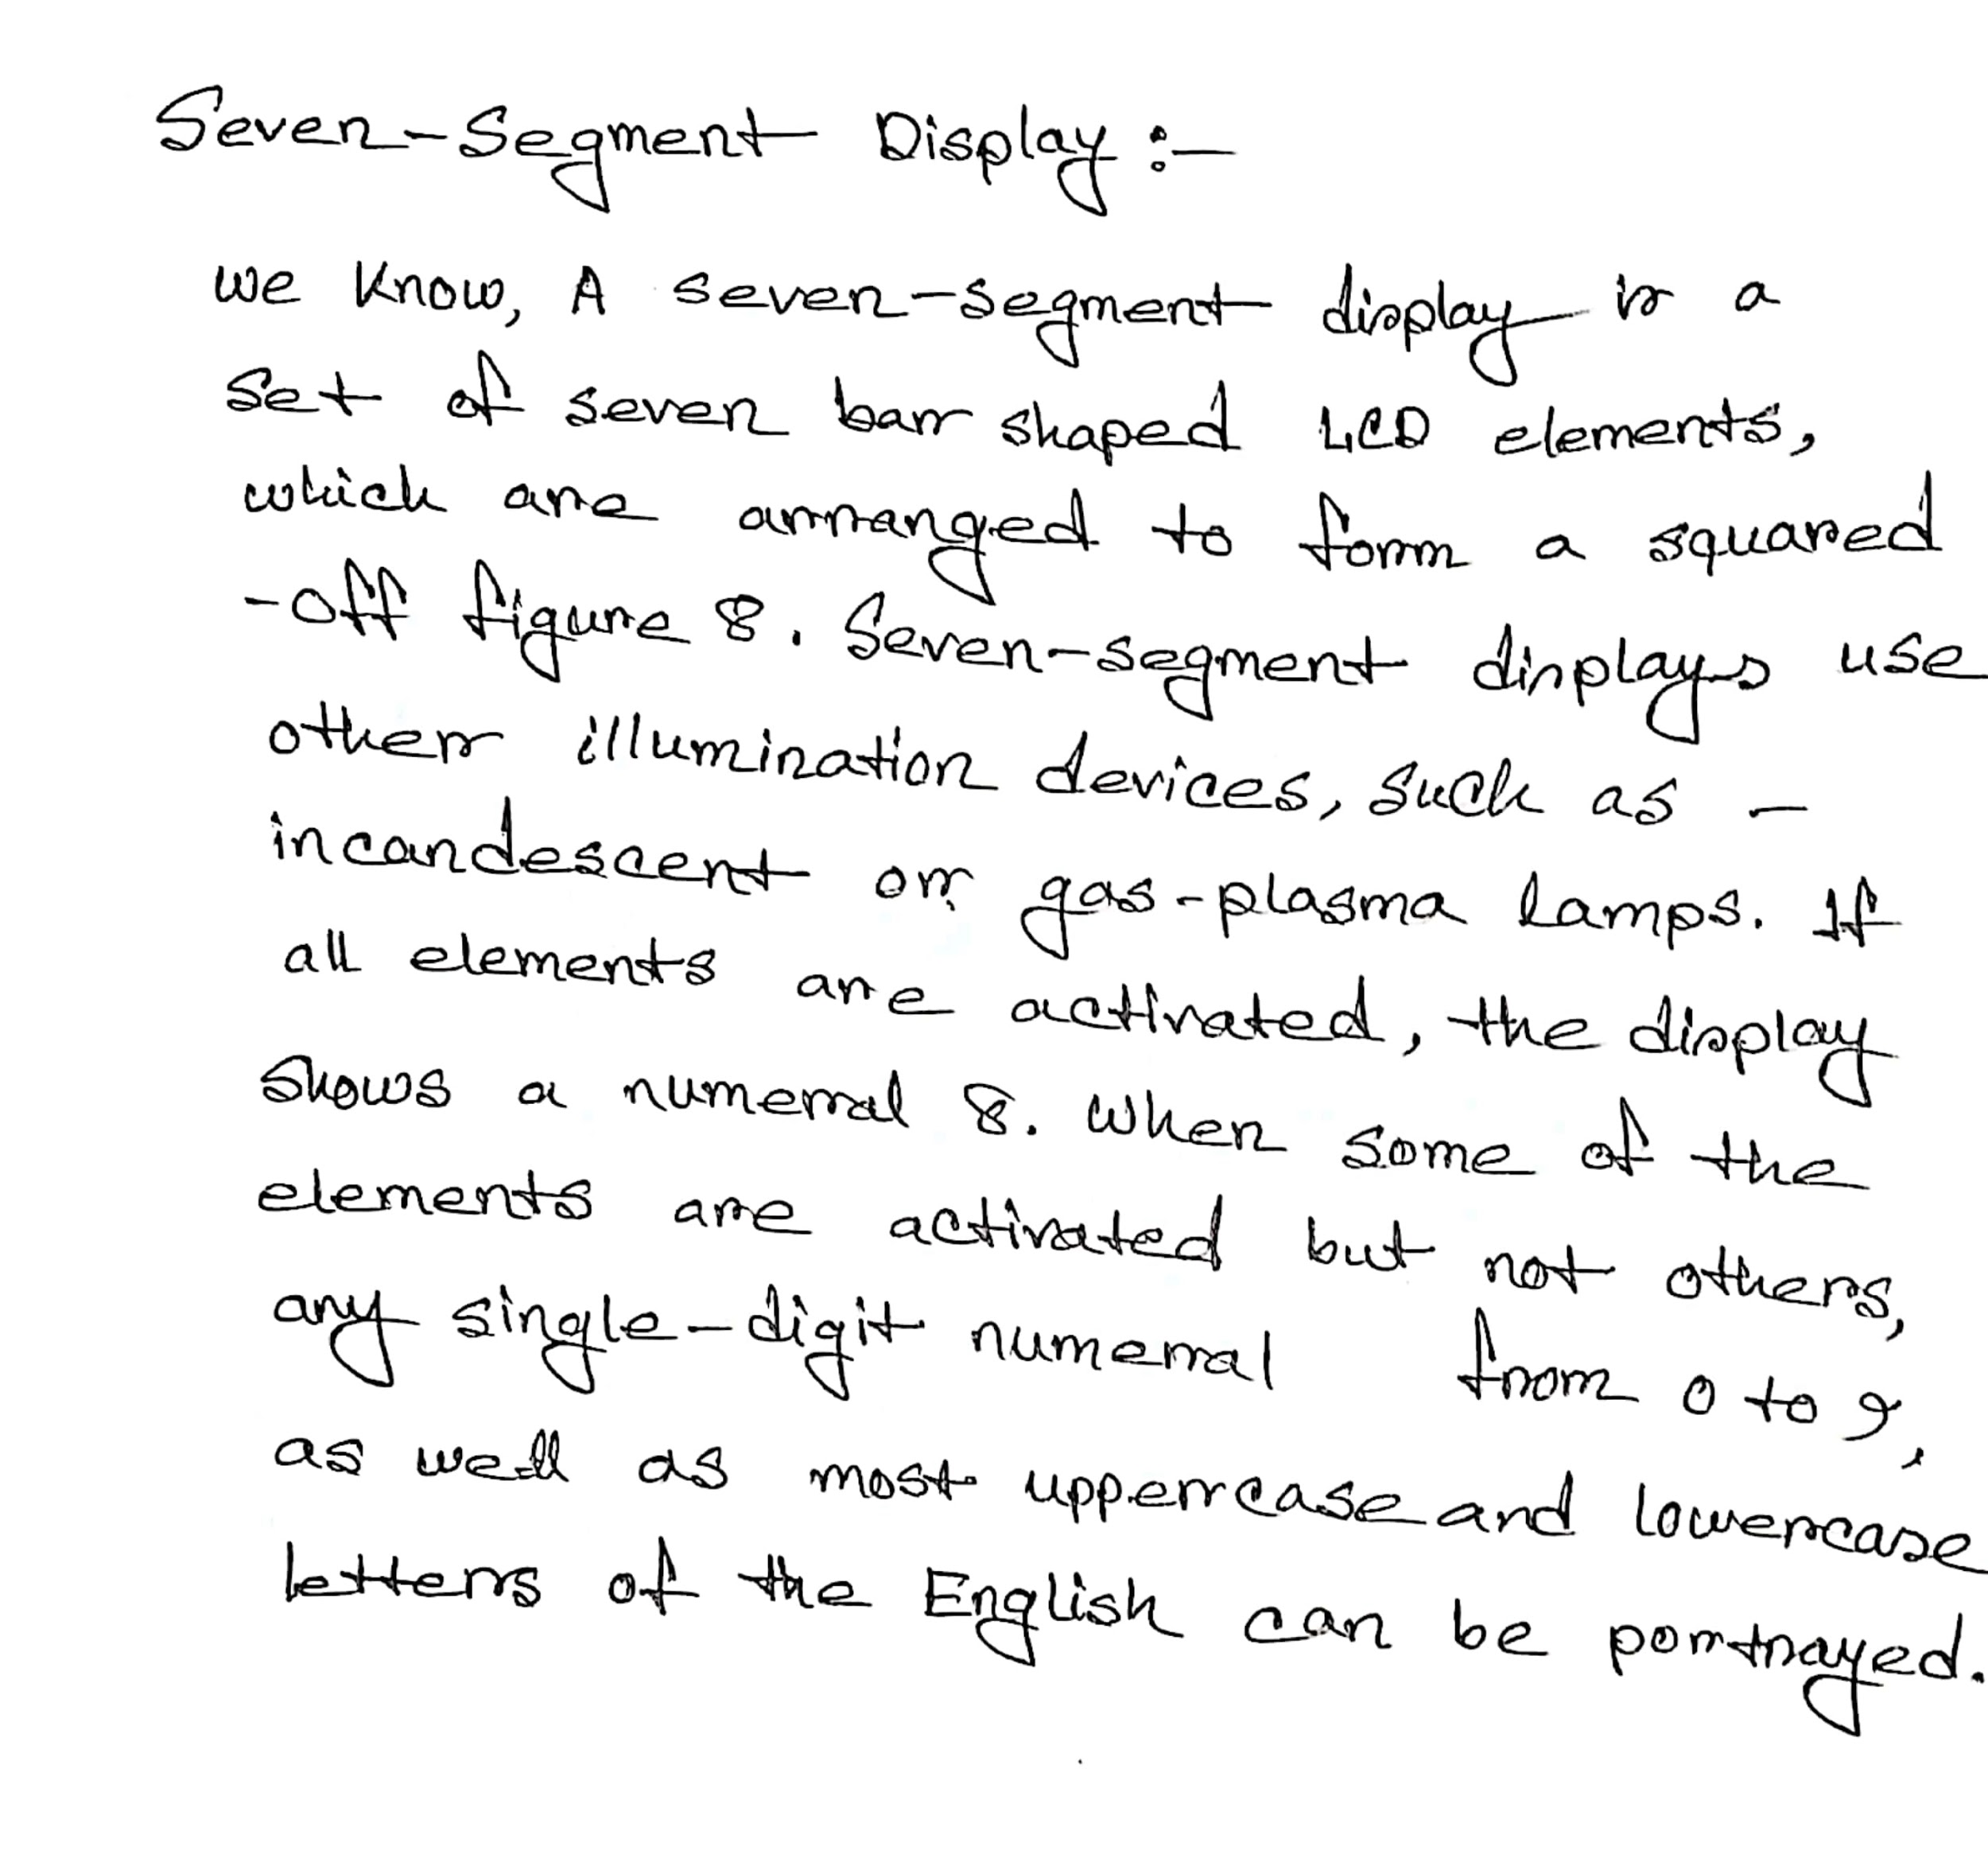 Seven-Segment Display :-
we know, A seven-segment display is a
set of seven bar shaped LCD elements,
which are arranged to form a squared
-off figure 8. Seven-segment displays use
other illumination devices, such as -
incandescent or gas-plasma lamps. If
all elements are activated, the display
shows a numeral 8. When some of the
elements are activated but not others,
any single-digit numeral from 0 to 9,
as well as most uppercase and lowercase
letters of the English can be portrayed.